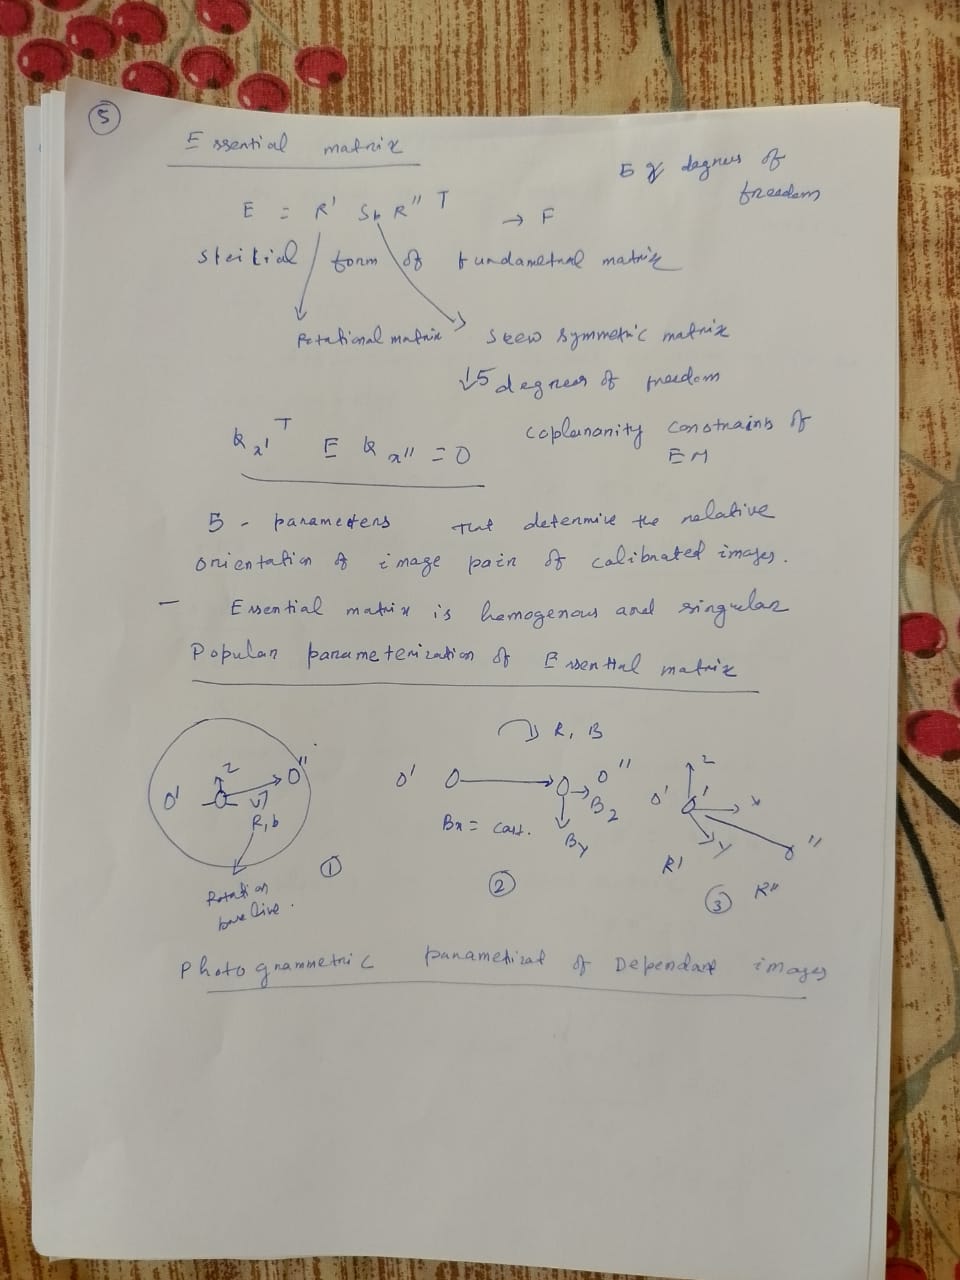 5
Essential matrix
5 degrees of
freedom
E = R' Sb R'' T → F
form of fundametnal matrix
Rotational matrix
Skew symmetric matrix
↓5 degrees of freedom
k x' T E k x'' = 0
coplananity constrains of
EM
5 - parameters that determine the relative
orientation of image pair of calibrated images.
- Essential matrix is homogenous and singular
Popular parameterization of Essential matrix
R, B
Z
O' O''
R, b
Rotation
base line.
1
O' O''
Bz
Bx = const.
By
2
Z
O' X
Y ''
R' R''
3
Photogrammetric of Dependant images